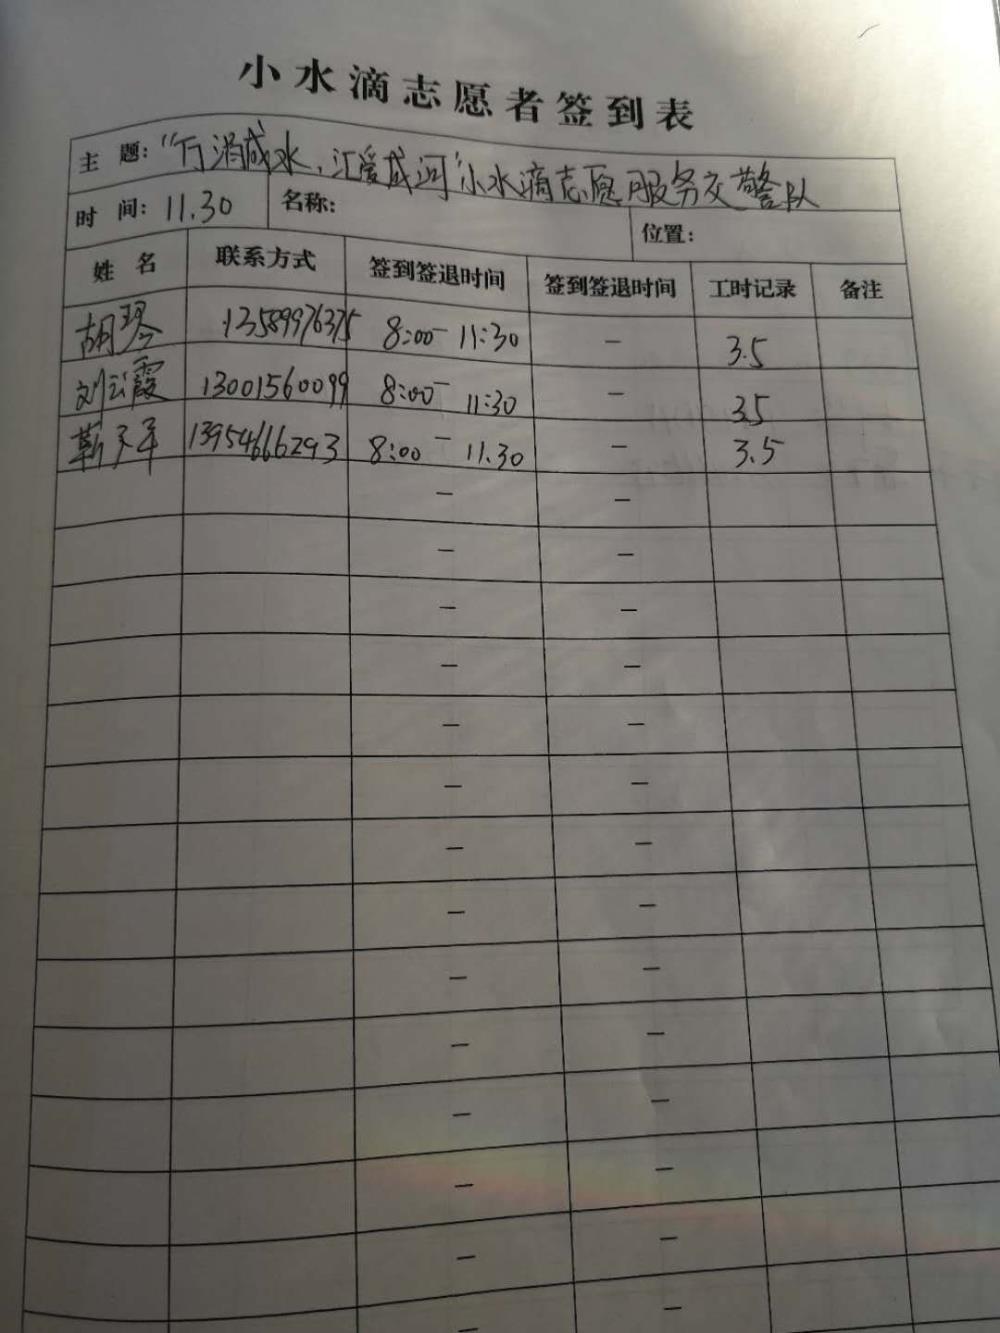 小水滴志愿者签到表
主 题: “行涓成水、汇爱成河”小水滴志愿服务交警队
时 间: 11.30 名称: 位置:
姓 名 联系方式 签到签退时间 签到签退时间 工时记录 备注
胡琴 13589976375 8:00 — 11:30 — 3.5
刘云霞 13001560099 8:00 — 11:30 — 3.5
靳 13954666293 8:00 — 11.30 — 3.5
— —
— —
— —
— —
— —
— —
— —
— —
— —
— —
— —
— —
— —
— —